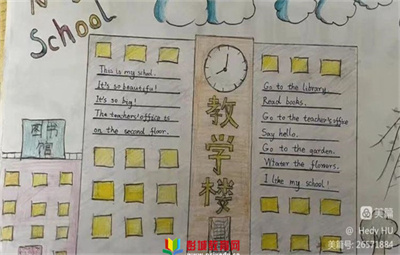 School
This is my school.
It's so beautiful!
It's so big!
The teachers' office is
on the second floor.
图书
馆
教学楼
Go to the library.
Read books.
Go to the teacher's office
Say hello.
Go to the garden.
Winter the flowers.
I like my school!
美篇
@ Hedy HU
美篇号: 26571884